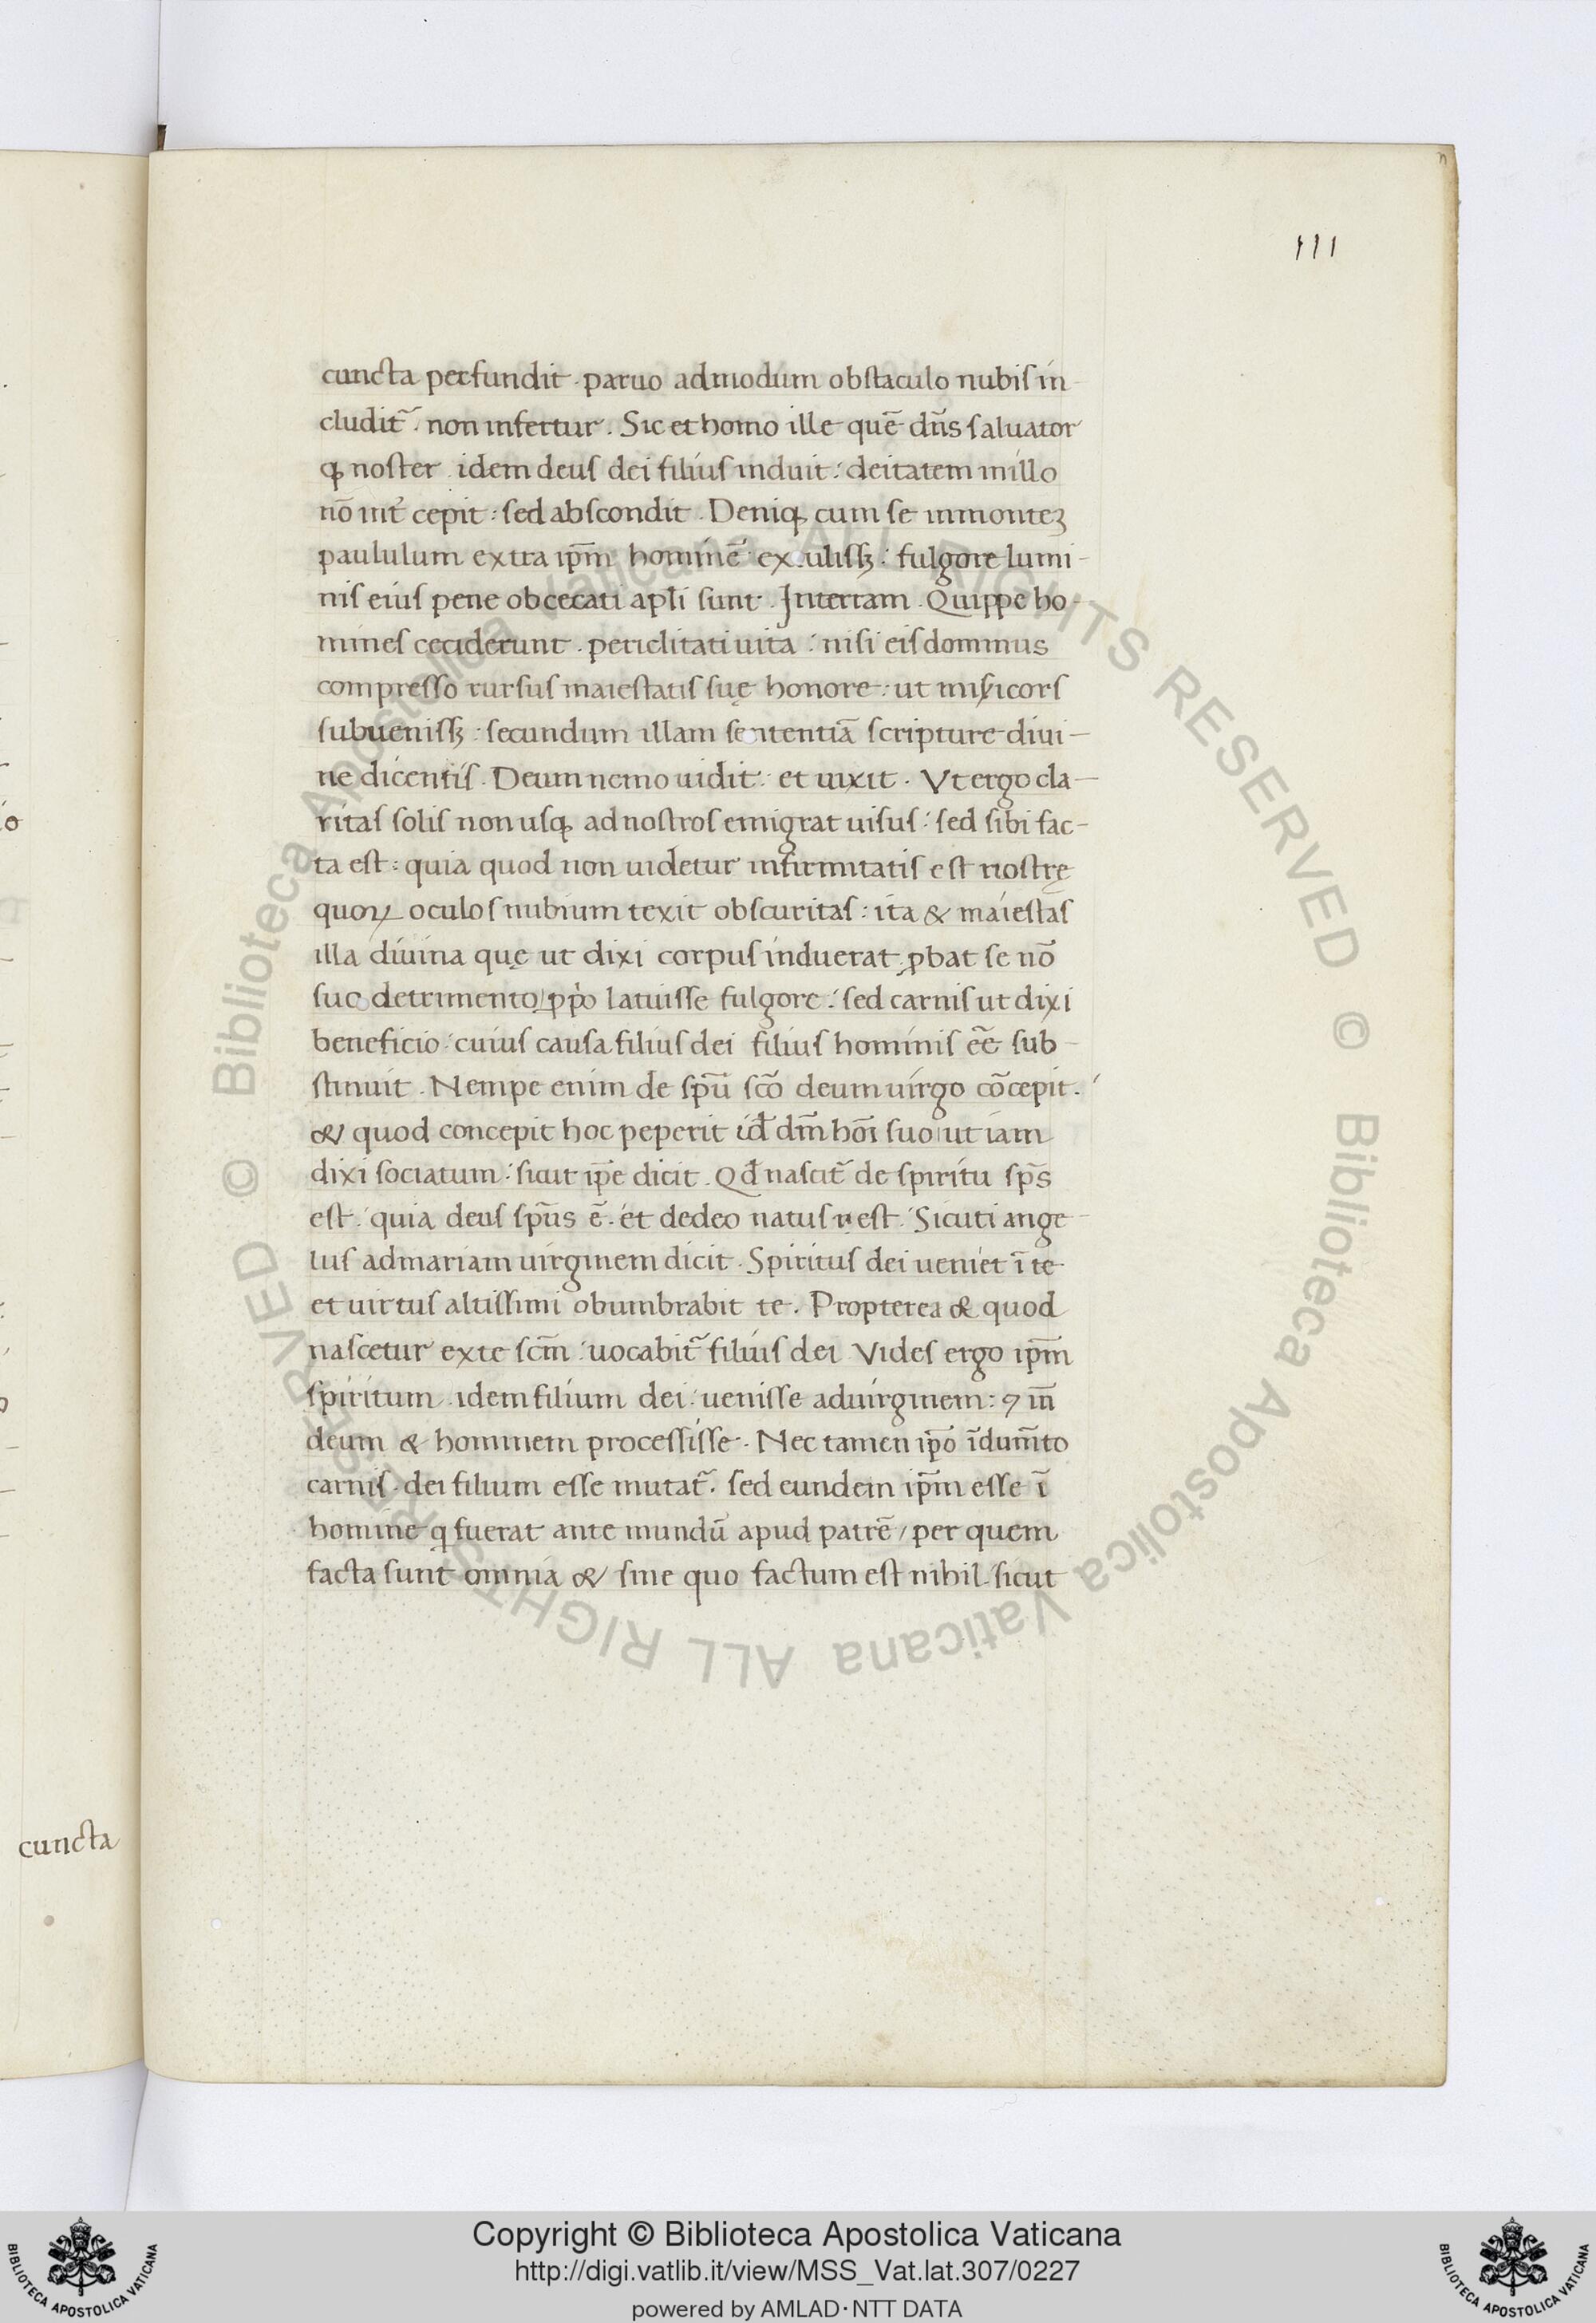 111
cuncta perfundit . paruo admodum obstaculo nubis in-
cludit᷑ . non infertur . Sic et homo ille quē dn̄s saluator
q; noster . idem deus dei filius induit : deitatem in illo
nō int᷑ cepit : sed abscondit . Deniq; cum se in monteʒ
paululum extra ip̄m hominē exulissʒ : fulgore lumi-
nis eius pene obcecati apl̄i sunt . Interram . Quippe ho-
mines ceciderunt . periclitati uita : nisi eis dominus
compresso rursus maiestatis suę honore : ut misicors
subuenissʒ : secundum illam sententiā scripture diui-
ne dicentis . Deum nemo uidit : et uixit . Vt ergo cla-
ritas solis non usq; ad nostros emigrat uisus : sed sibi fac-
ta est : quia quod non uidetur infirmitatis est nostrę
quoꝝ oculos nubium texit obscuritas : ita & maiestas
illa diuina quę ut dixi corpus induerat ꝓbat se nō
suo detrimento ꝓpo latuisse fulgore : sed carnis ut dixi
beneficio : cuius causa filius dei filius hominis eē sub-
stinuit . Nempe enim de sp̄u sc̄o deum uirgo cōcepit .
& quod concepit hoc peperit id̄ dm̄ hoī suo ut iam
dixi sociatum : sicut ip̄e dicit . Qd̄ nascit᷑ de spiritu sp̄s
est : quia deus sp̄us ē . et de deo natus est . Sicuti ange-
lus ad mariam uirginem dicit . Spiritus dei ueniet ī te
et uirtus altissimi obumbrabit te . Propterea & quod
nascetur ex te sc̄m : uocabit᷑ filius dei Vides ergo ip̄m
spiritum . idem filium dei : uenisse ad uirginem : ⁊ īn
deum & hominem processisse . Nec tamen ip̄o īdum̄to
carnis . dei filium esse mutat᷑ . sed eundem ip̄m esse ī
homine q fuerat ante mundū apud patrē / per quem
facta sunt omnia & sine quo factum est nihil . sicut
cuncta
© Biblioteca Apostolica Vaticana ALL RIGHTS RESERVED © Biblioteca Apostolica Vaticana ALL RIGHTS RESERVED
Copyright © Biblioteca Apostolica Vaticana
http://digi.vatlib.it/view/MSS_Vat.lat.307/0227
powered by AMLAD·NTT DATA
BIBLIOTECA APOSTOLICA VATICANA
BIBLIOTECA APOSTOLICA VATICANA